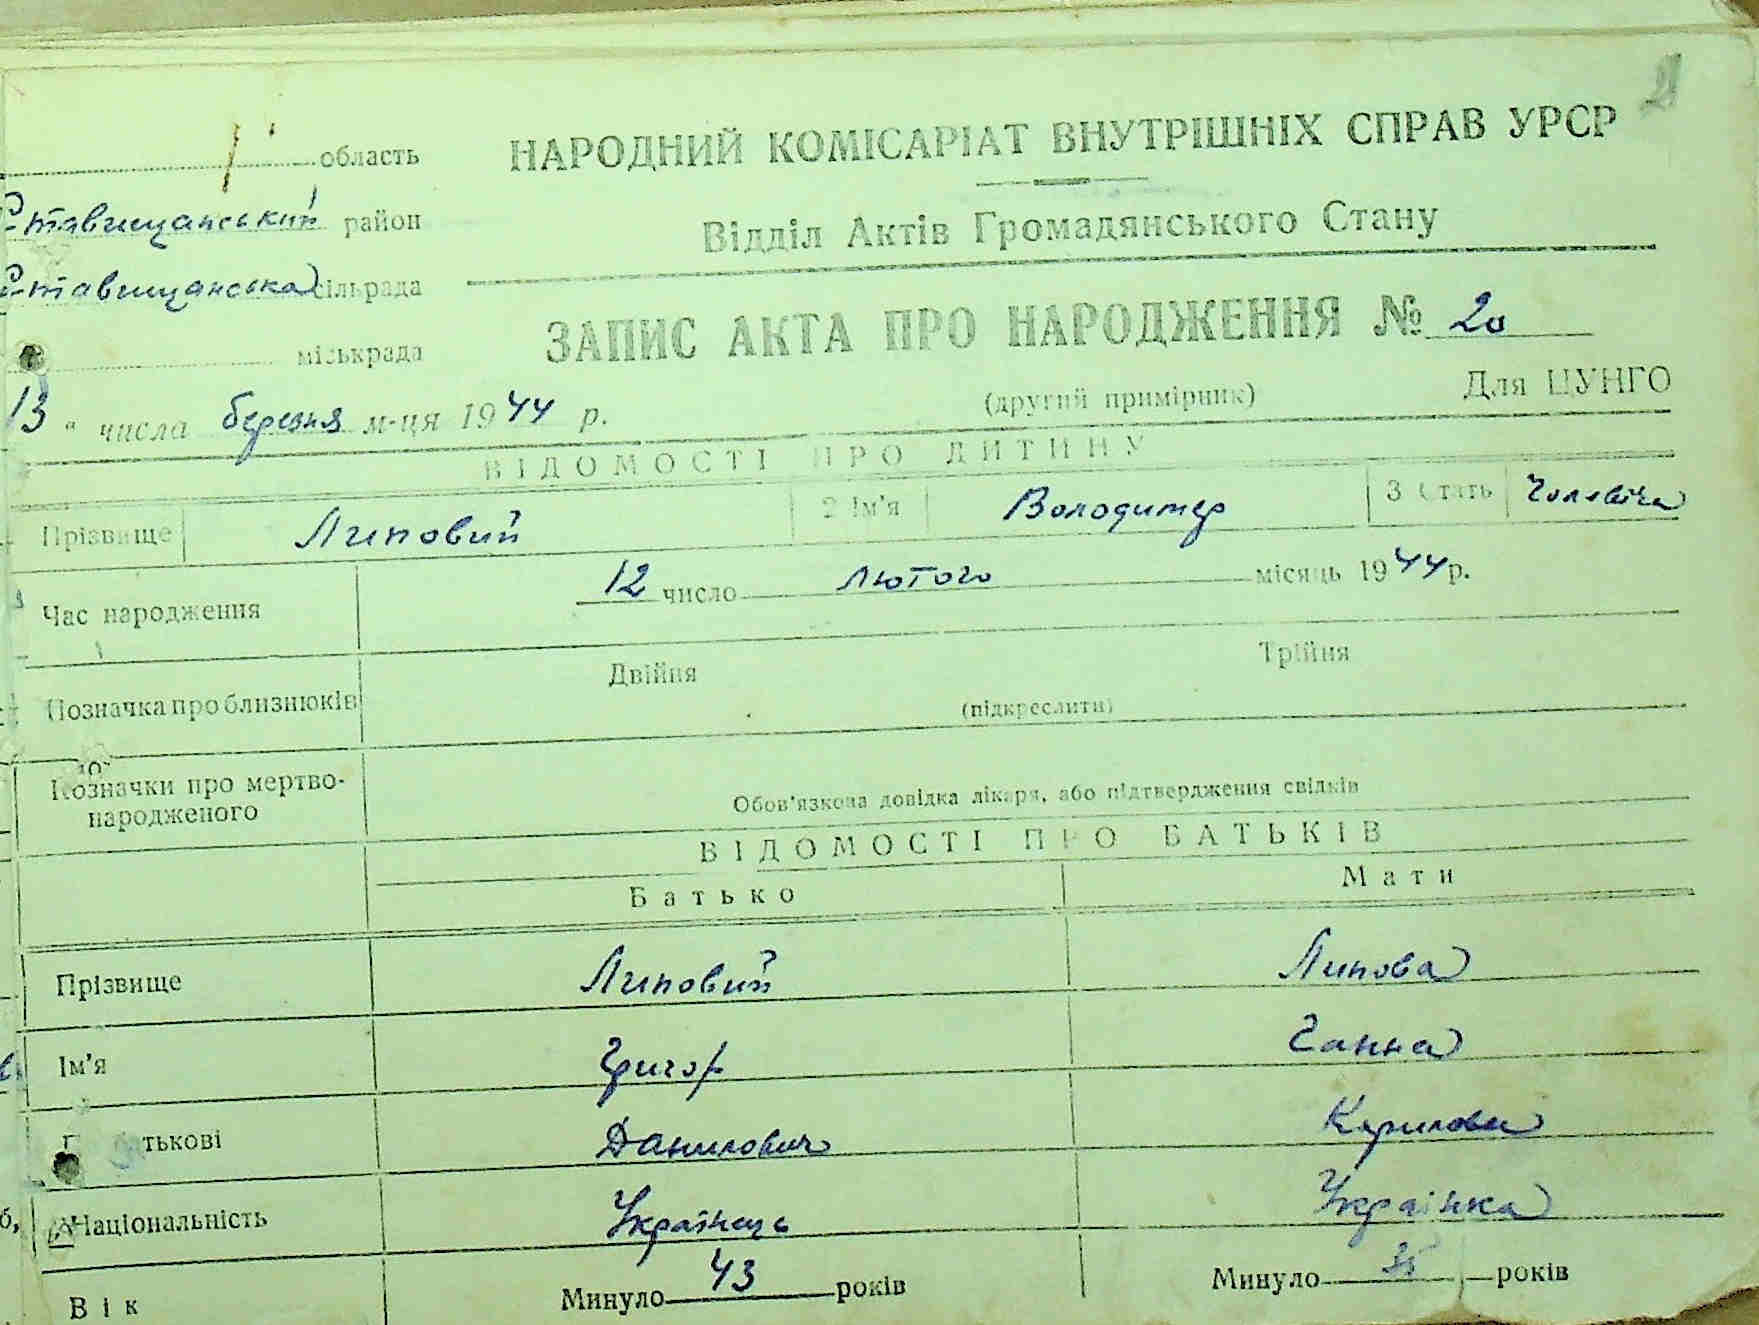 21
область
НАРОДНИЙ КОМІСАРІАТ ВНУТРІШНІХ СПРАВ УРСР
Ставищанський район
Відділ Актів Громадянського Стану
Ставищанська сільрада
ЗАПИС АКТА ПРО НАРОДЖЕННЯ № 20
міськрада
13 " числа березня м-ця 1944 р.
(другий примірник) Для ЦУНГО
ВІДОМОСТІ ПРО ДИТИНУ
Прізвище Липовий 2 Ім'я Володимер 3 Стать Чоловіча
Час народження 12 число лютого місяць 1944 р.
Позначка про близнюків Двійня Трійня
(підкреслити)
Позначки про мертво-
народженого
Обов'язкова довідка лікаря, або підтвердження свідків
ВІДОМОСТІ ПРО БАТЬКІВ
Батько Мати
Прізвище Липовий Липова
Ім'я Григор Ганна
тькові Данилович Кирилова
Національність Українець Українка
Вік Минуло 43 років Минуло 35 років